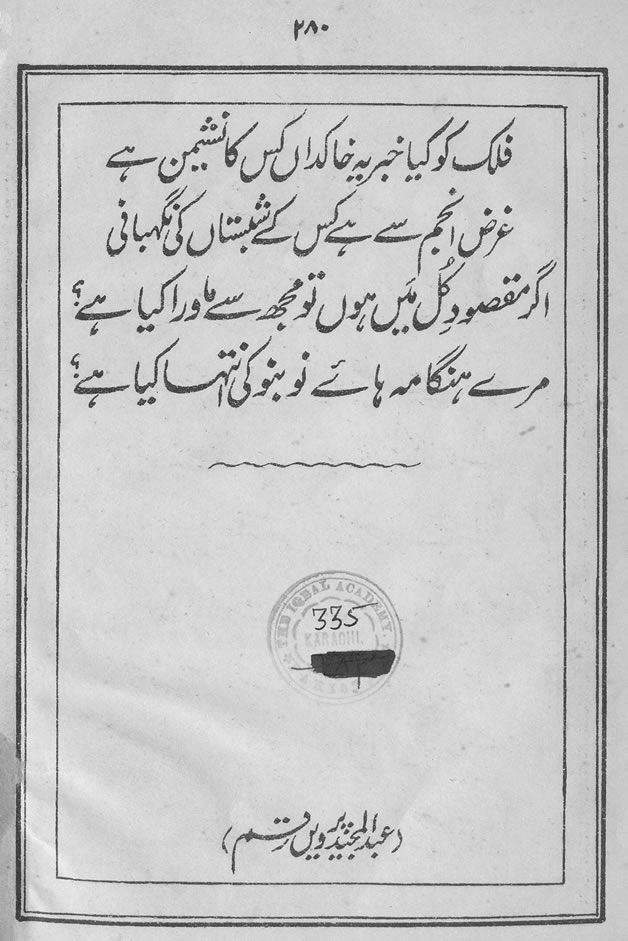 ۲۸۰
فلک کو کیا خبر یہ خاکداں کس کا نشیمن ہے
غرض انجم سے ہے کس کے شبستاں کی نگہبانی
اگر مقصودِ کُل میَں ہوں تو مجھ سے ماورا کیا ہے؟
مرے ہنگامہ ہائے نو بنو کی انتہا کیا ہے؟
THE IQBAL ACADEMY.
335
KARACHI.
(عبدالمجید پرویں رقم)